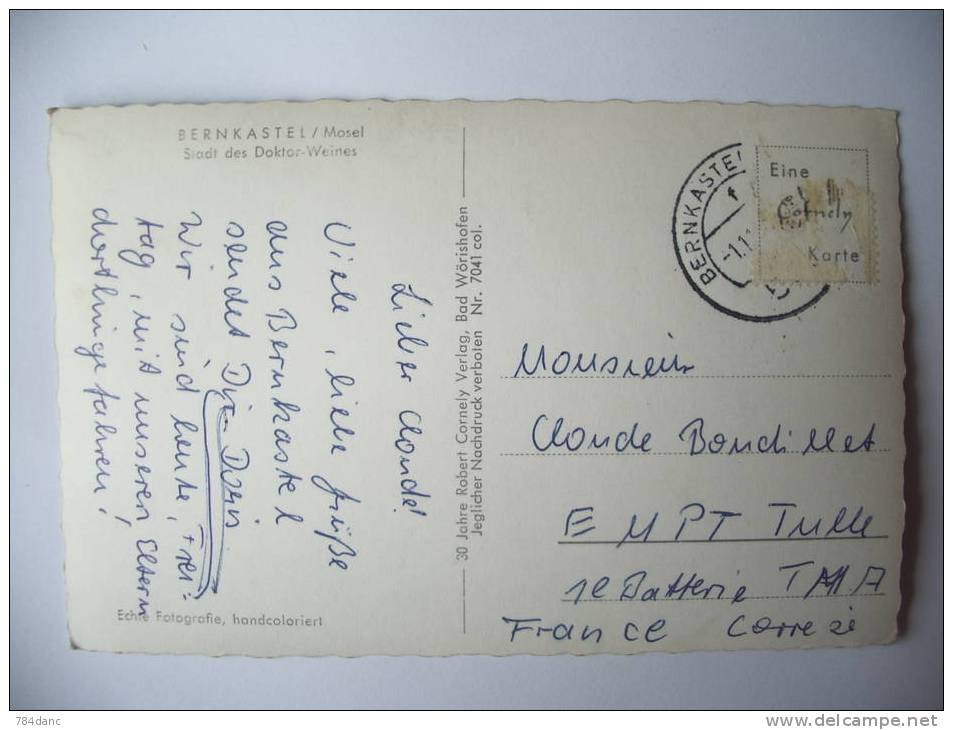 BERNKASTEL / Mosel
Stadt des Doktor-Weines
Lieber Claude!
Viele, liebe Grüße
aus Bernkastel
sendet Dir Doris
Wir sind heute, Frei-
tag, mit unseren Eltern
dorthingefahren!
Echte Fotografie, handcoloriert
30 Jahre Robert Cornely Verlag, Bad Wörishofen
Jeglicher Nachdruck verboten Nr. 7041 col.
BERNKASTEL
-1.1
Eine
Cornely
Karte
Monsieur
Claude Bondillet
E M P T Tulle
1e Batterie
France Correze
784danc
delcampe.net